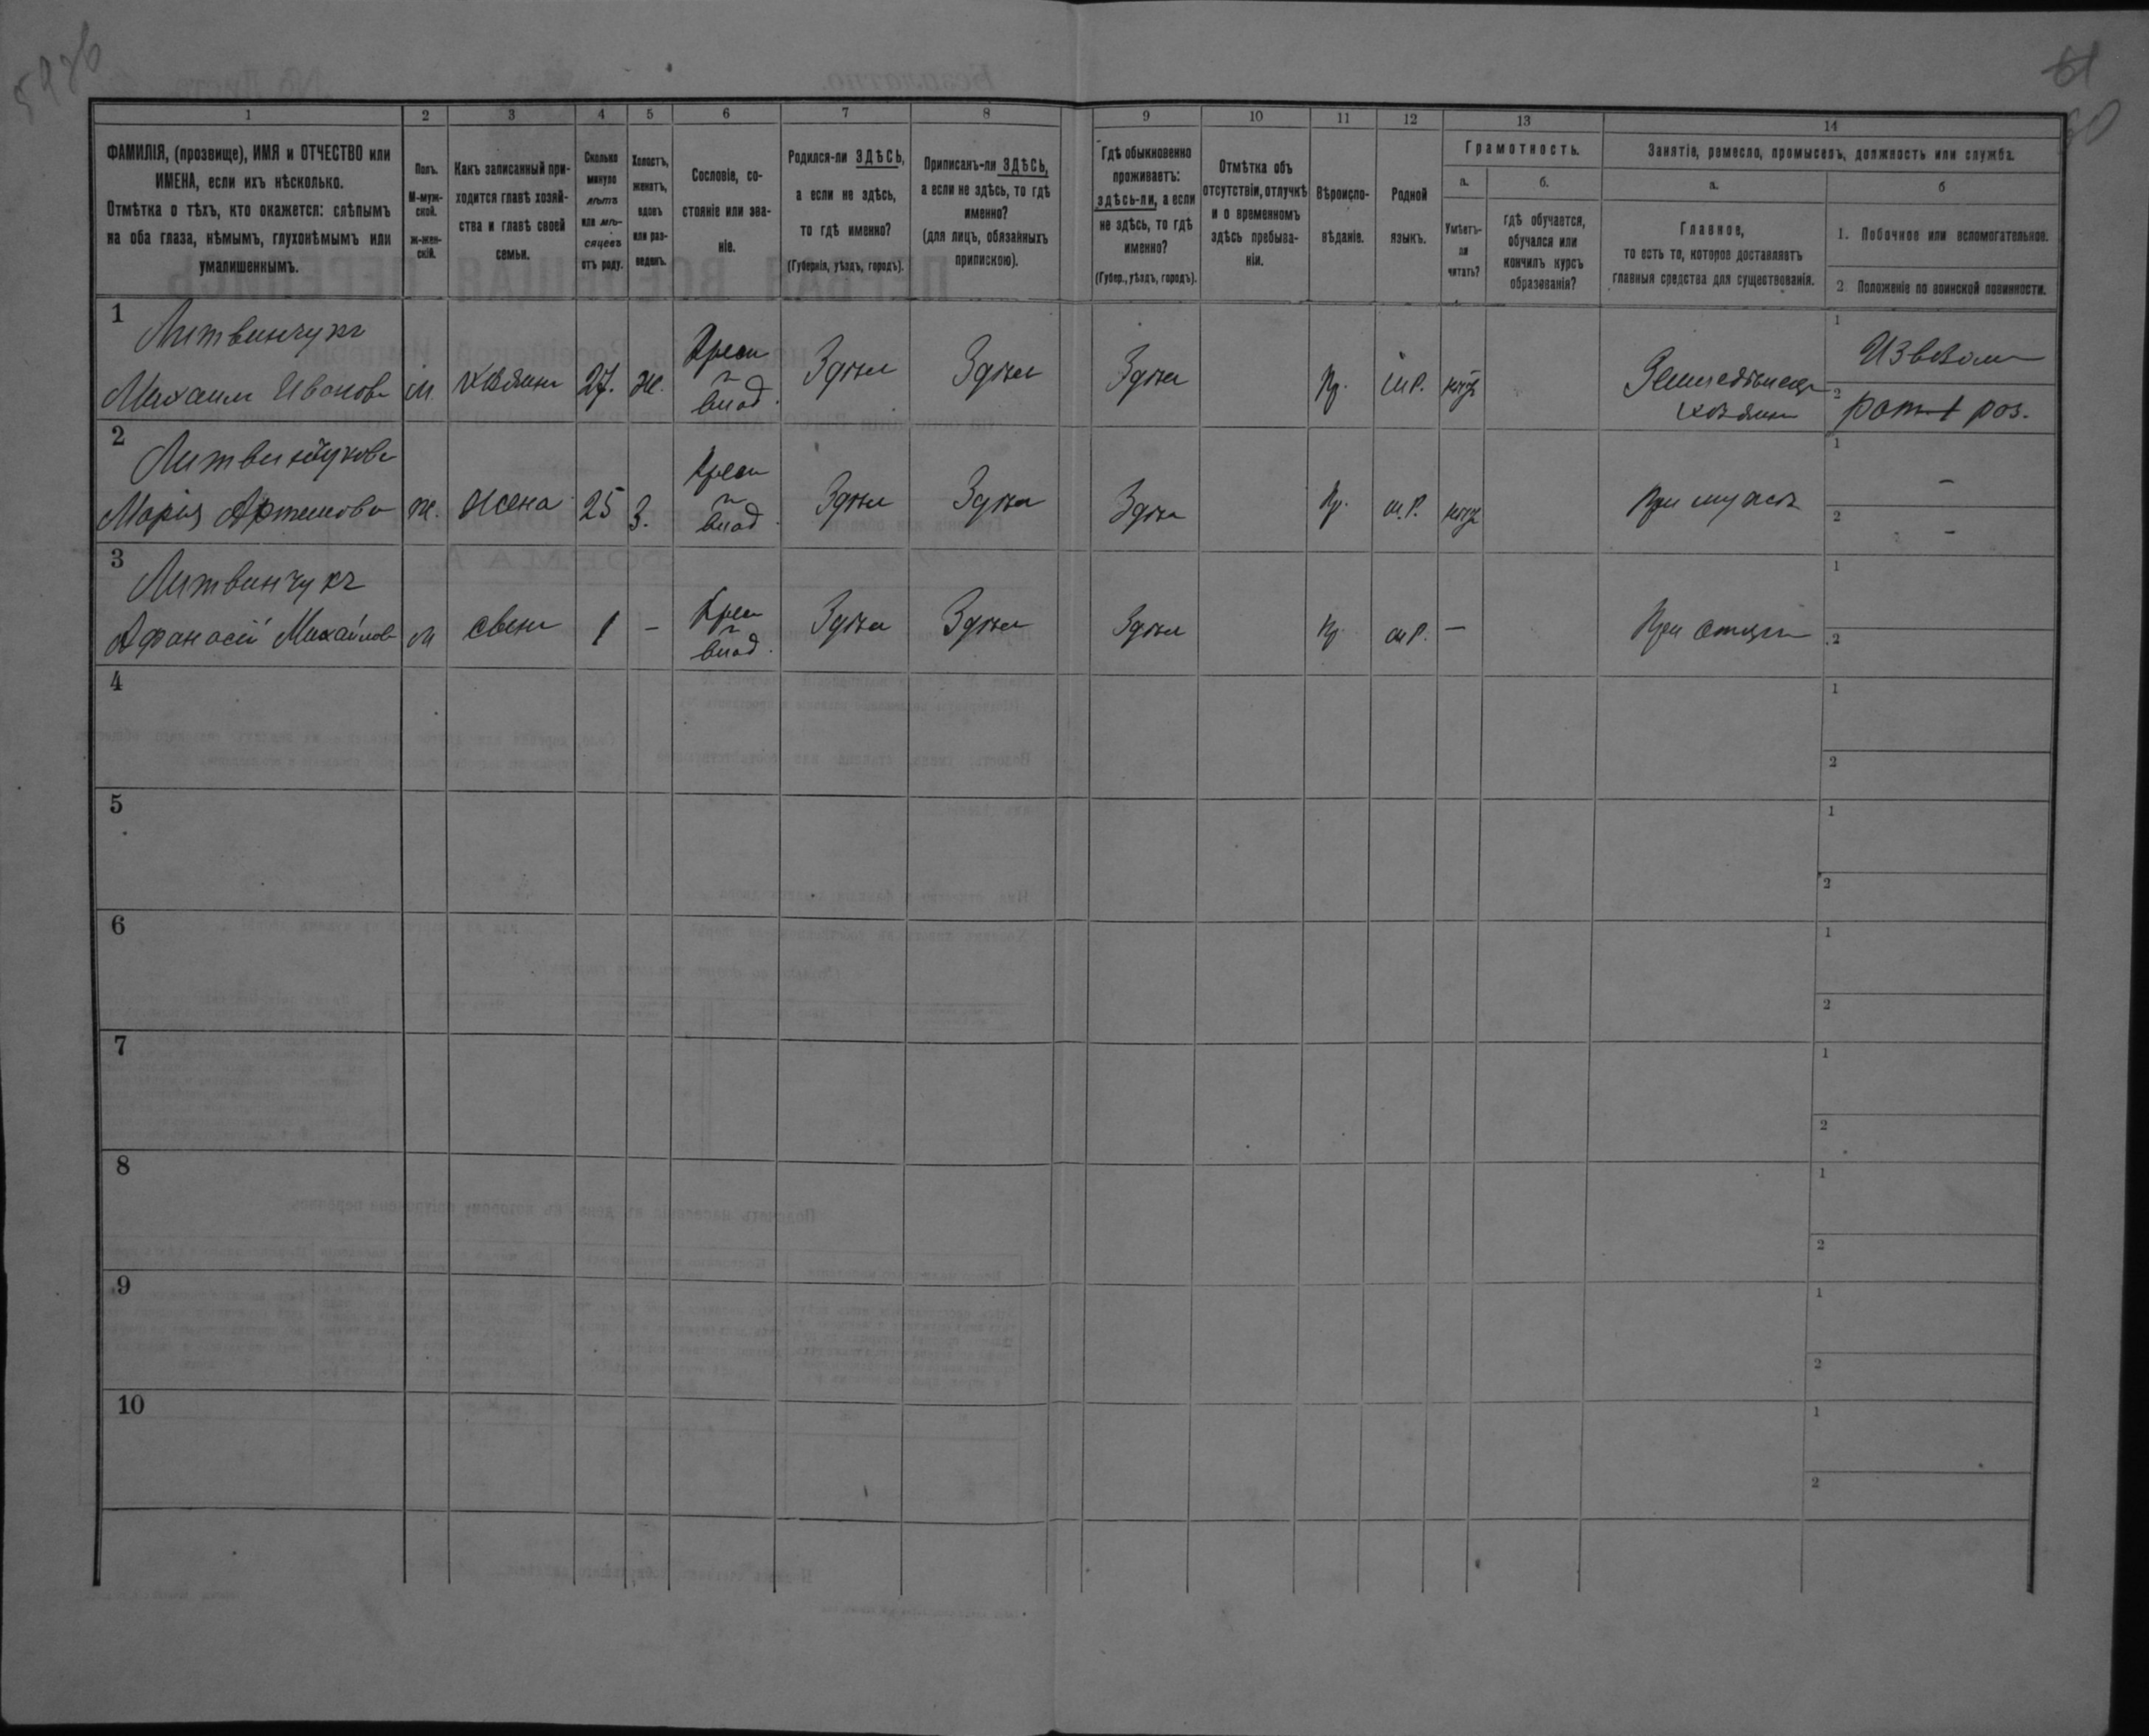 61
60
1 2 3 4 5 6 7 8 9 10 11 12 13 14
ФАМИЛІЯ, (прозвище), ИМЯ и ОТЧЕСТВО или
ИМЕНА, если ихъ нѣсколько.
Отмѣтка о тѣхъ, кто окажется: слѣпымъ
на оба глаза, нѣмымъ, глухонѣмымъ или
умалишеннымъ.
Полъ.
М-муж-
ской.
ж-жен-
скій.
Какъ записанный при-
ходится главѣ хозяй-
ства и главѣ своей
семьи.
Сколько
минуло
лѣтъ
или мѣ-
сяцевъ
отъ роду.
Холостъ,
женатъ,
вдовъ
или раз-
веденъ.
Сословіе, со-
стояніе или зва-
ніе.
Родился-ли ЗДѢСЬ,
а если не здѣсь,
то гдѣ именно?
(Губернія, уѣздъ, городъ).
Приписанъ-ли ЗДѢСЬ,
а если не здѣсь, то гдѣ
именно?
(для лицъ, обязанныхъ
припискою).
Гдѣ обыкновенно
проживаетъ:
здѣсь-ли, а если
не здѣсь, то гдѣ
именно?
(Губер., уѣздъ, городъ).
Отмѣтка объ
отсутствіи, отлучкѣ
и о временномъ
здѣсь пребыва-
ніи.
Вѣроиспо-
вѣданіе.
Родной
языкъ.
Грамотность.
а.
Умѣетъ-
ли
читать?
б.
гдѣ обучается,
обучался или
кончилъ курсъ
образованія?
Занятіе, ремесло, промыселъ, должность или служба.
а.
Главное,
то есть то, которое доставляетъ
главныя средства для существованія.
б
1. Побочное или вспомогательное.
2 Положеніе по воинской повинности.
1
Литвинчукъ
Михаилъ Ивановъ М Хозяинъ 27. Ж. Крест. Влад. Здѣсь Здѣсь Здѣсь Пр. М.Р. Земледѣлецъ
хозяинъ
1 Извозъ
2 рат. 1 раз.
2
Литвинчукова
Марія Артемова Ж. Жена 25 З. Крест. Влад. Здѣсь Здѣсь Здѣсь Пр. М.Р. При мужѣ
1 -
2 -
3
Литвинчукъ
Афанасій Михайловъ М Сынъ 1 - Крест. Влад. Здѣсь Здѣсь Здѣсь Пр М.Р. - При отцѣ
1
2
4
1
2
5
1
2
6
1
2
7
1
2
8
1
2
9
1
2
10
1
2